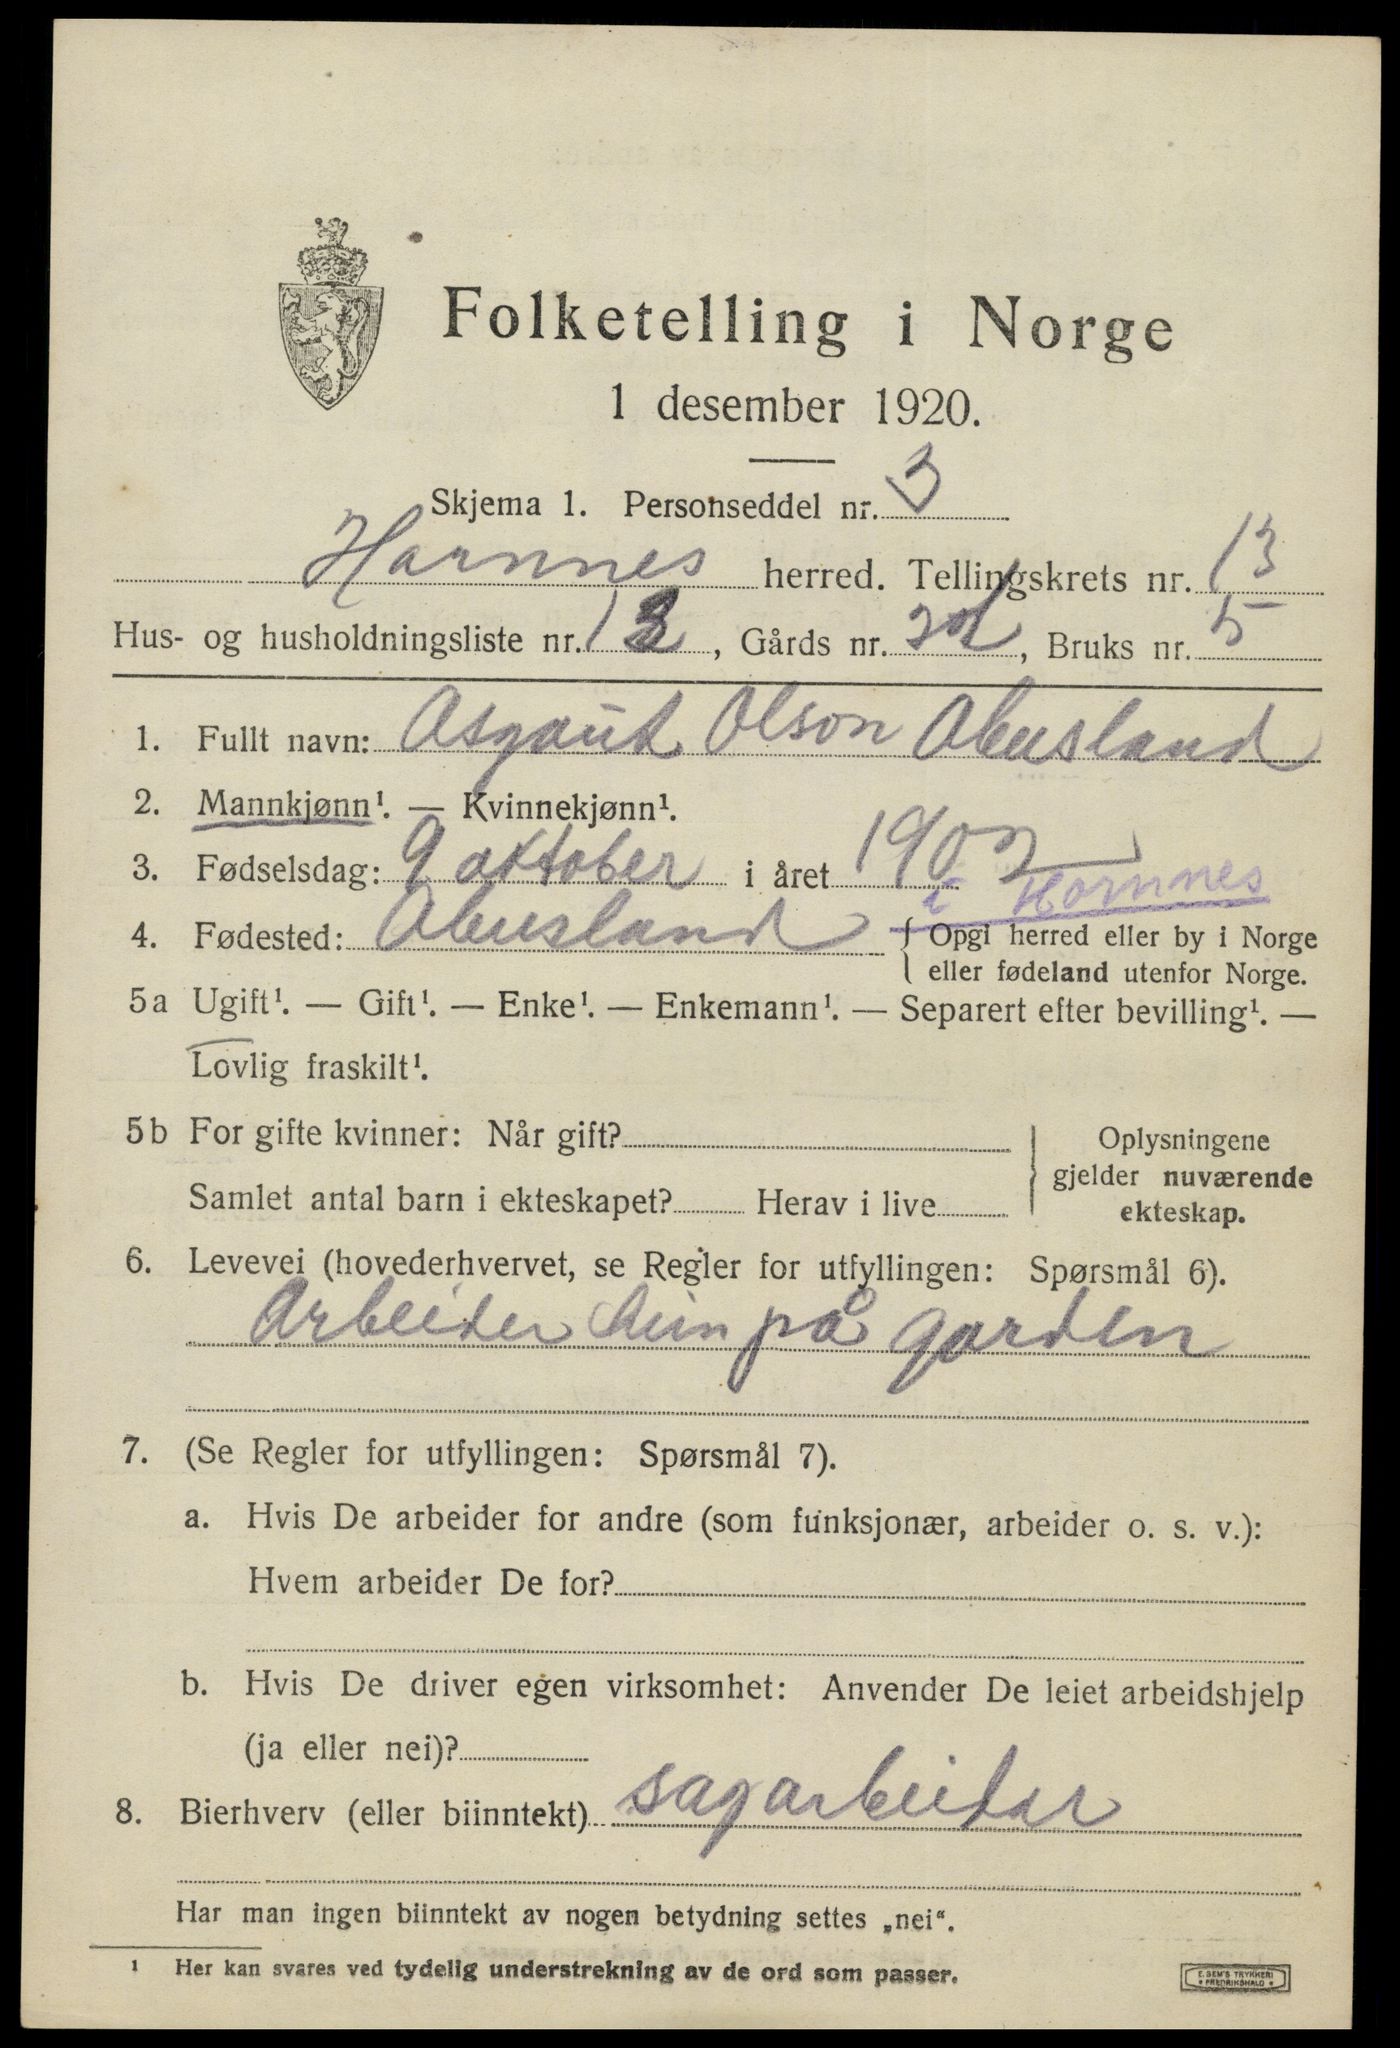 Folketelling i Norge
1 desember 1920.
Skjema 1. Personseddel nr. 3
Hornnes herred. Tellingskrets nr. 13
Hus- og husholdningsliste nr. 12, Gårds nr. , Bruks nr. 5
1. Fullt navn: Asgaut Olson Abusland
2. Mannkjønn¹. — Kvinnekjønn¹.
3. Fødselsdag: 9 oktober i året 1902
i Hornnes
4. Fødested: Abusland { Opgi herred eller by i Norge
eller fødeland utenfor Norge.
5a Ugift¹. — Gift¹. — Enke¹. — Enkemann¹. — Separert efter bevilling¹. —
Lovlig fraskilt¹.
5b For gifte kvinner: Når gift? Oplysningene
gjelder nuværende
Samlet antal barn i ekteskapet? Herav i live
ekteskap.
6. Levevei (hovederhvervet, se Regler for utfyllingen: Spørsmål 6).
Arbeider heim på garden
7. (Se Regler for utfyllingen: Spørsmål 7).
a. Hvis De arbeider for andre (som funksjonær, arbeider o. s. v.):
Hvem arbeider De for?
b. Hvis De driver egen virksomhet: Anvender De leiet arbeidshjelp
(ja eller nei)?
8. Bierhverv (eller biinntekt) sagarbeidar
Har man ingen biinntekt av nogen betydning settes „nei“.
¹ Her kan svares ved tydelig understrekning av de ord som passer.
E. SEM'S TRYKKERI
FREDRIKSHALD